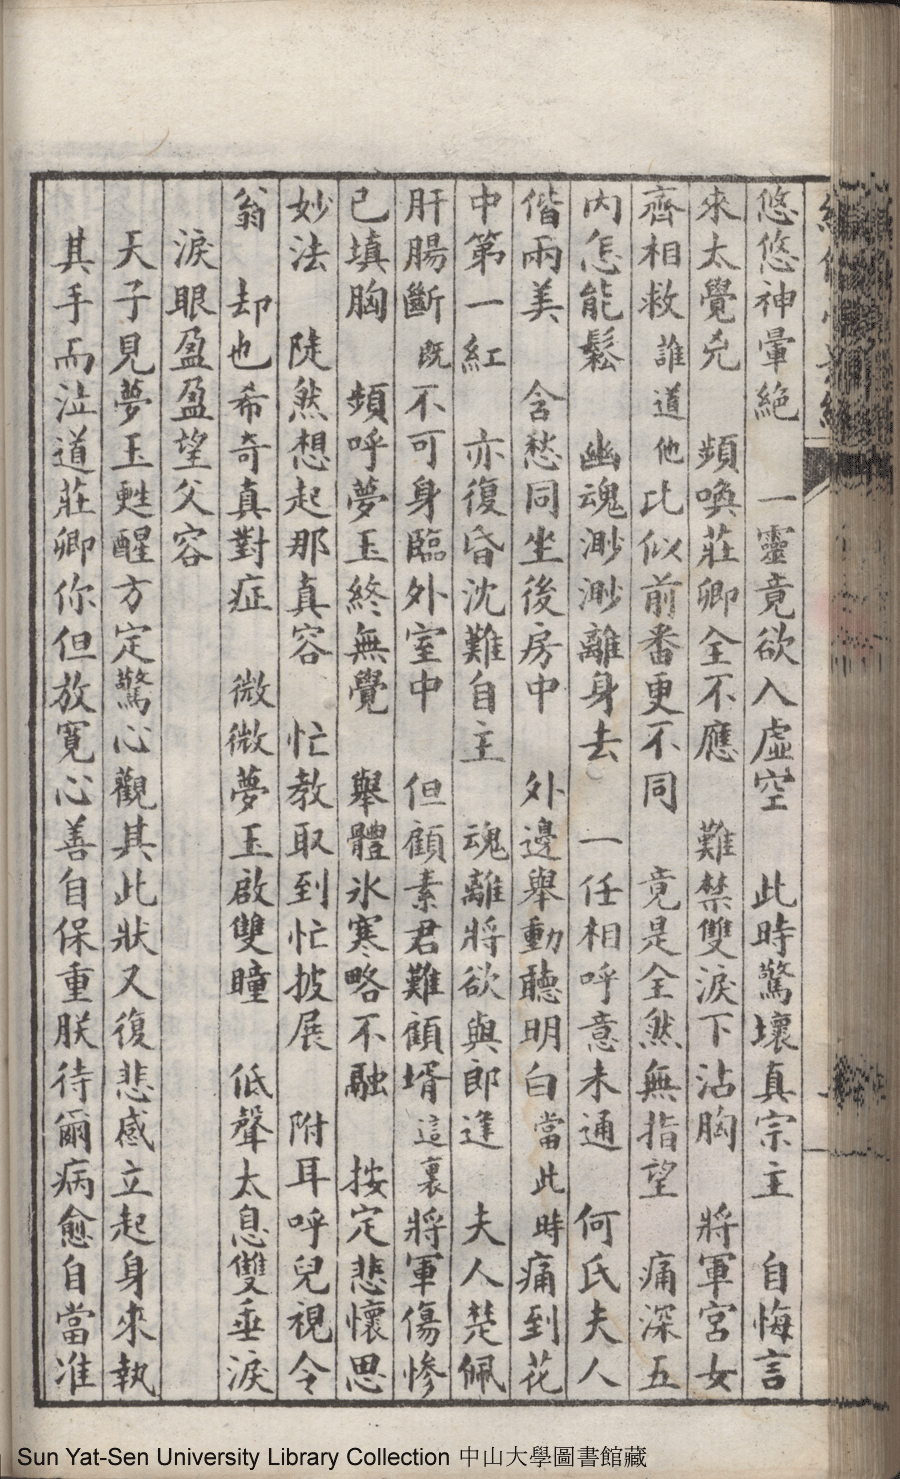 悠悠神暈絕　一靈竟欲入虛空　此時驚壞真宗主　自悔言
來太覺兇　頻喚莊卿全不應　難禁雙淚下沾胸　將軍宮女
齊相救　誰道他比似前番更不同　竟是全然無指望　痛深五
內怎能鬆　幽魂渺渺離身去　一任相呼意未通　何氏夫人
偕兩美　含愁同坐後房中　外邊舉動聽明白　當此時痛到花
中第一紅　亦復昏沈難自主　魂離將欲與郎逢　夫人楚佩
肝腸斷　既不可身臨外室中　但顧素君難顧壻　這裏將軍傷慘
已填胸　頻呼夢玉終無覺　舉體氷寒略不融　按定悲懷思
妙法　陡然想起那真容　忙教取到忙披展　附耳呼兒視令
翁　却也希奇真對症　微微夢玉啟雙瞳　低聲太息雙垂淚
淚眼盈盈望父容
天子見夢玉甦醒方定驚心觀其此狀又復悲感立起身來執
其手而泣道莊卿你但放寬心善自保重朕待爾病愈自當准
Sun Yat-Sen University Library Collection 中山大學圖書館藏